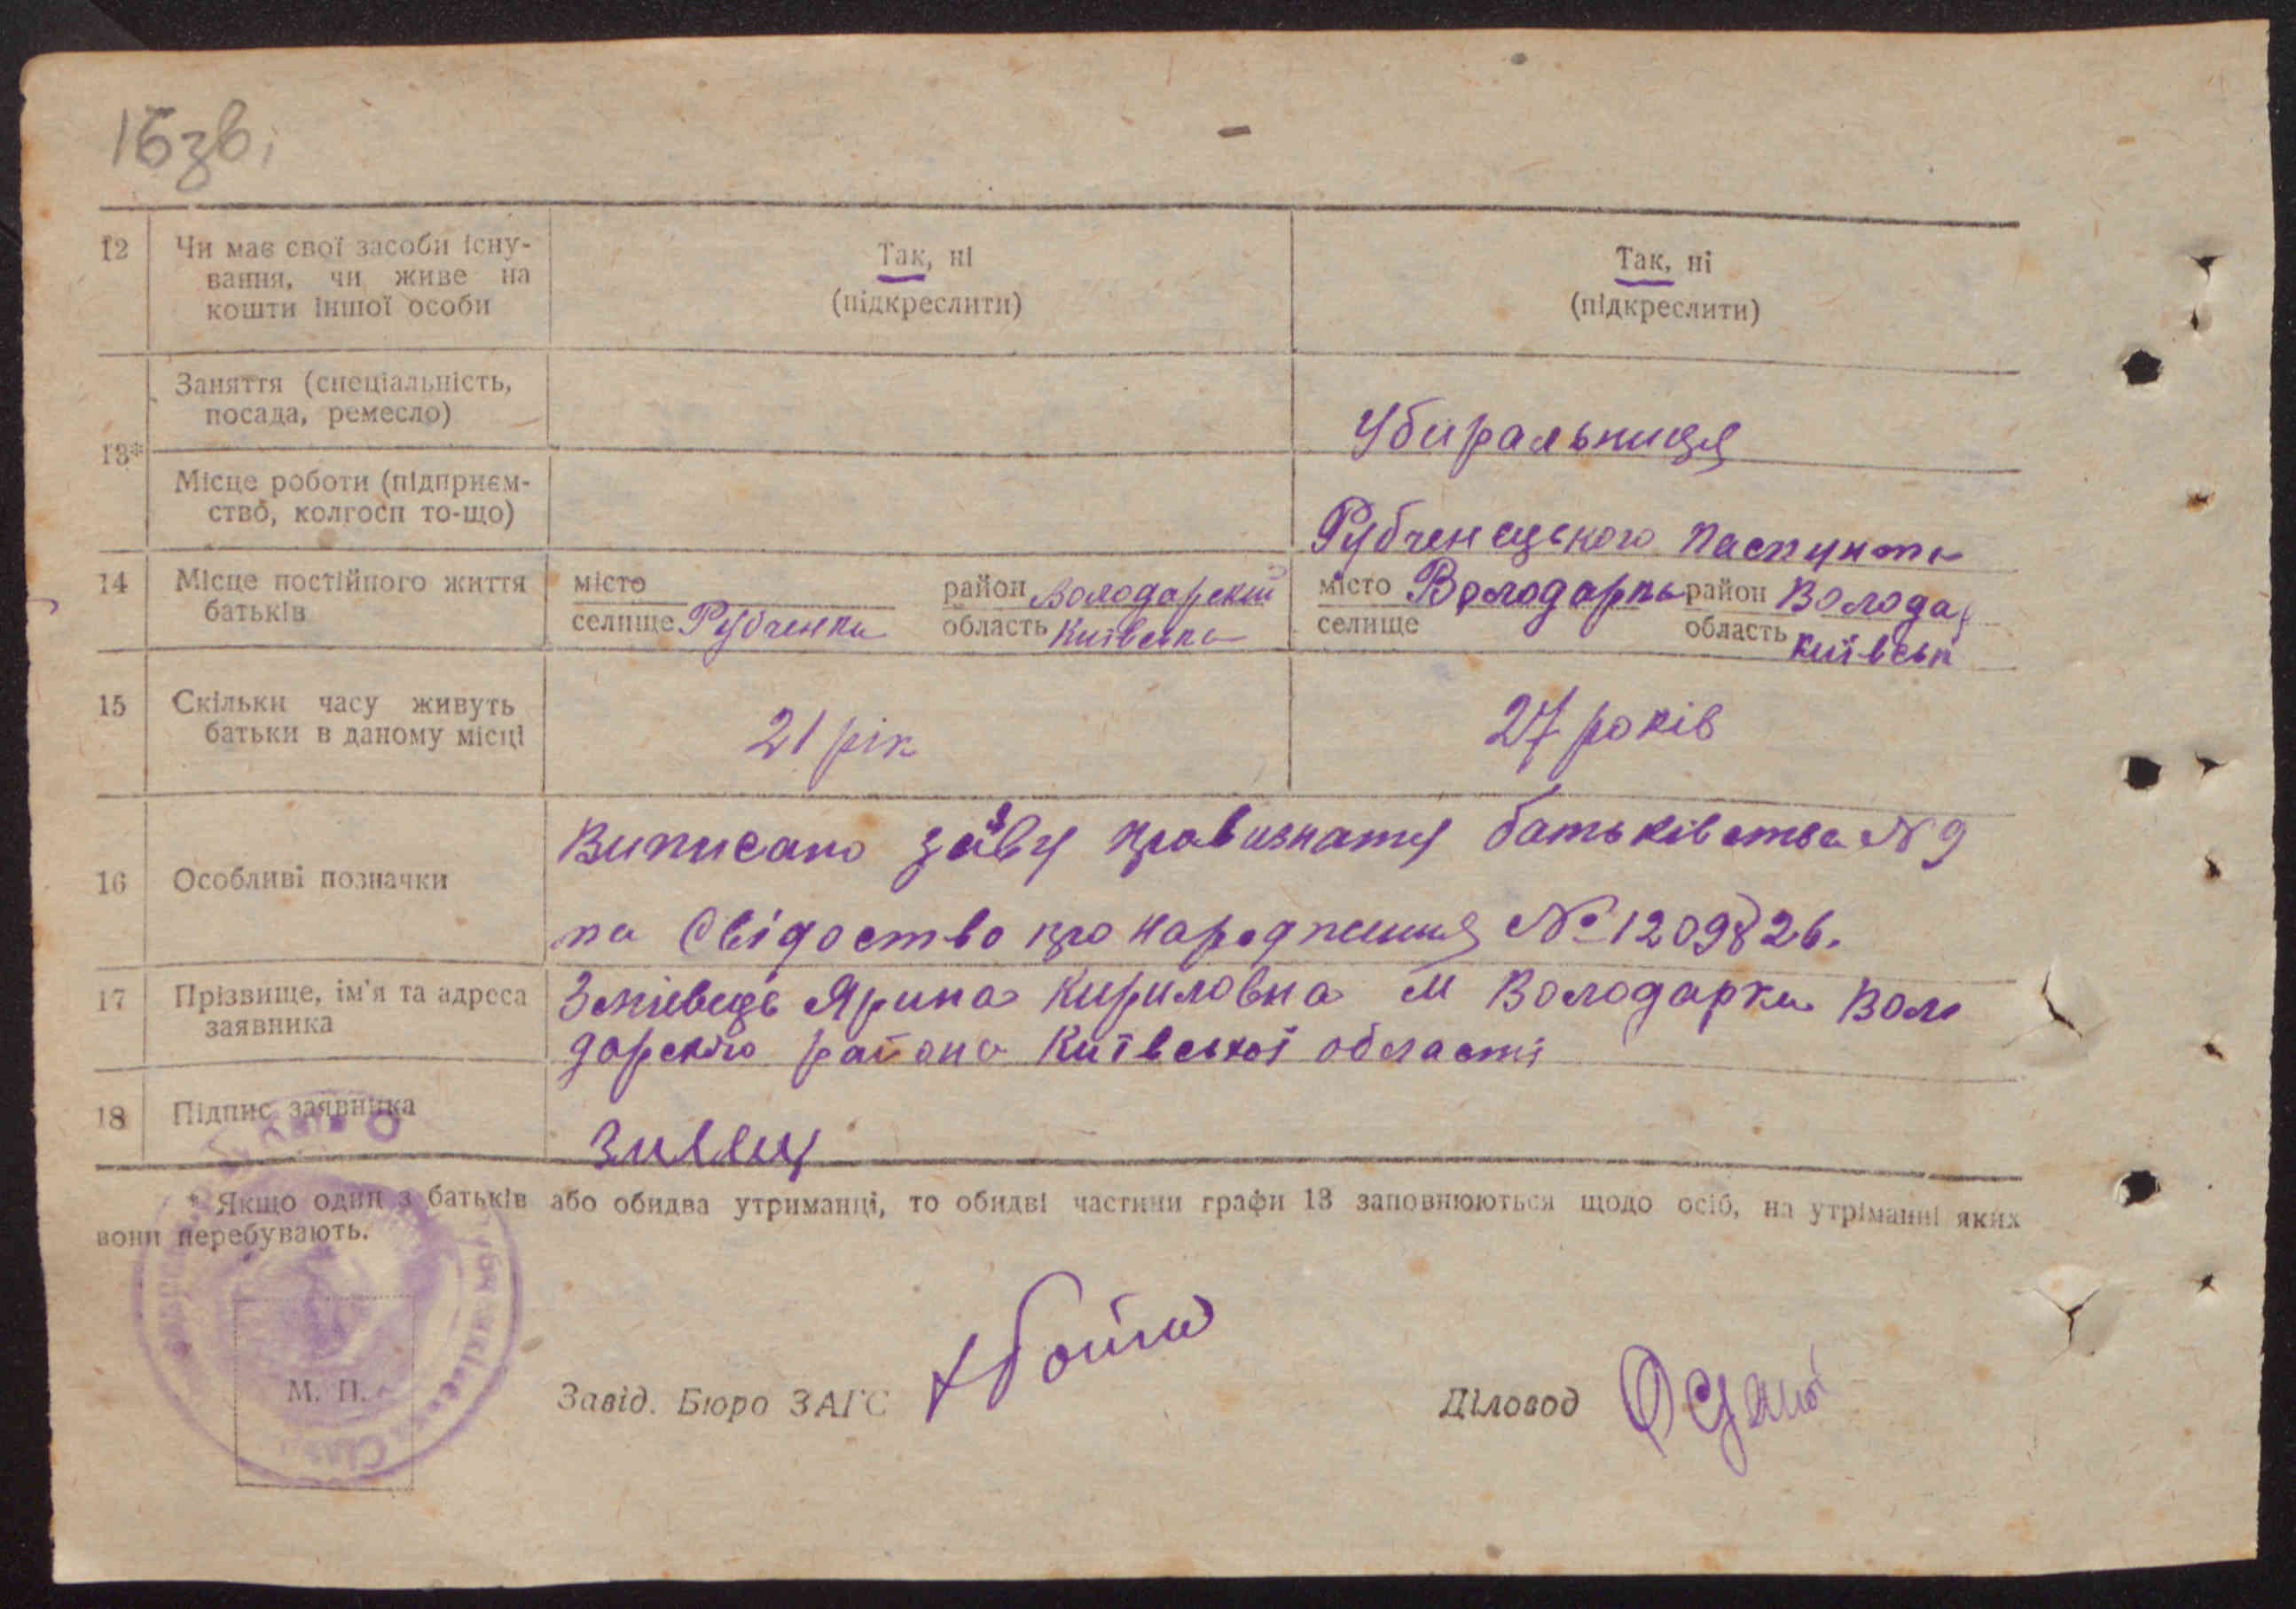 16зв.
12 Чи має свої засоби існу- Так, ні Так, ні
вання, чи живе на (підкреслити) (підкреслити)
кошти іншої особи
Заняття (спеціальність,
посада, ремесло) Убиральниця
13*
Місце роботи (підприєм-
ство, колгосп то-що) Рубченецького
14 Місце постійного життя місто район Володарский місто Володарка район Волода
батьків селище Рубченки область Київська селище область Київськ
15 Скільки часу живуть 21 рік 27 років
батьки в даному місці
Виписано заяву про визнаття батьківства № 9
16 Особливі позначки
на Свідоство про народження № 1209826.
17 Прізвище, ім'я та адреса Змієвець Ярина Кириловна м Володарка Воло
заявника дарского района Київської області
18 Підпис заявника
* Якщо один з батьків або обидва утриманці, то обидві частини графи 13 заповнюються щодо осіб, на утріманні яких
вони перебувають.
М. П.
Завід. Бюро ЗАГС Діловод